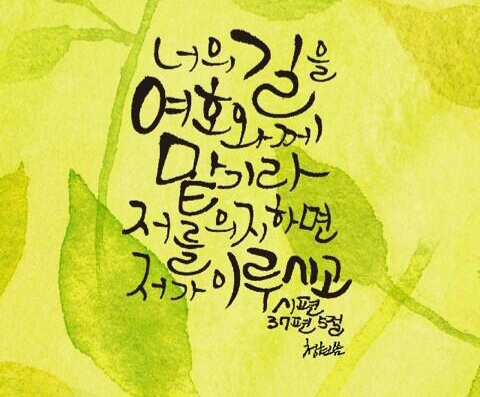 너의 길을
여호와께
맡기라
저를 의지하면
저가 이루시고
시편
37편 5절